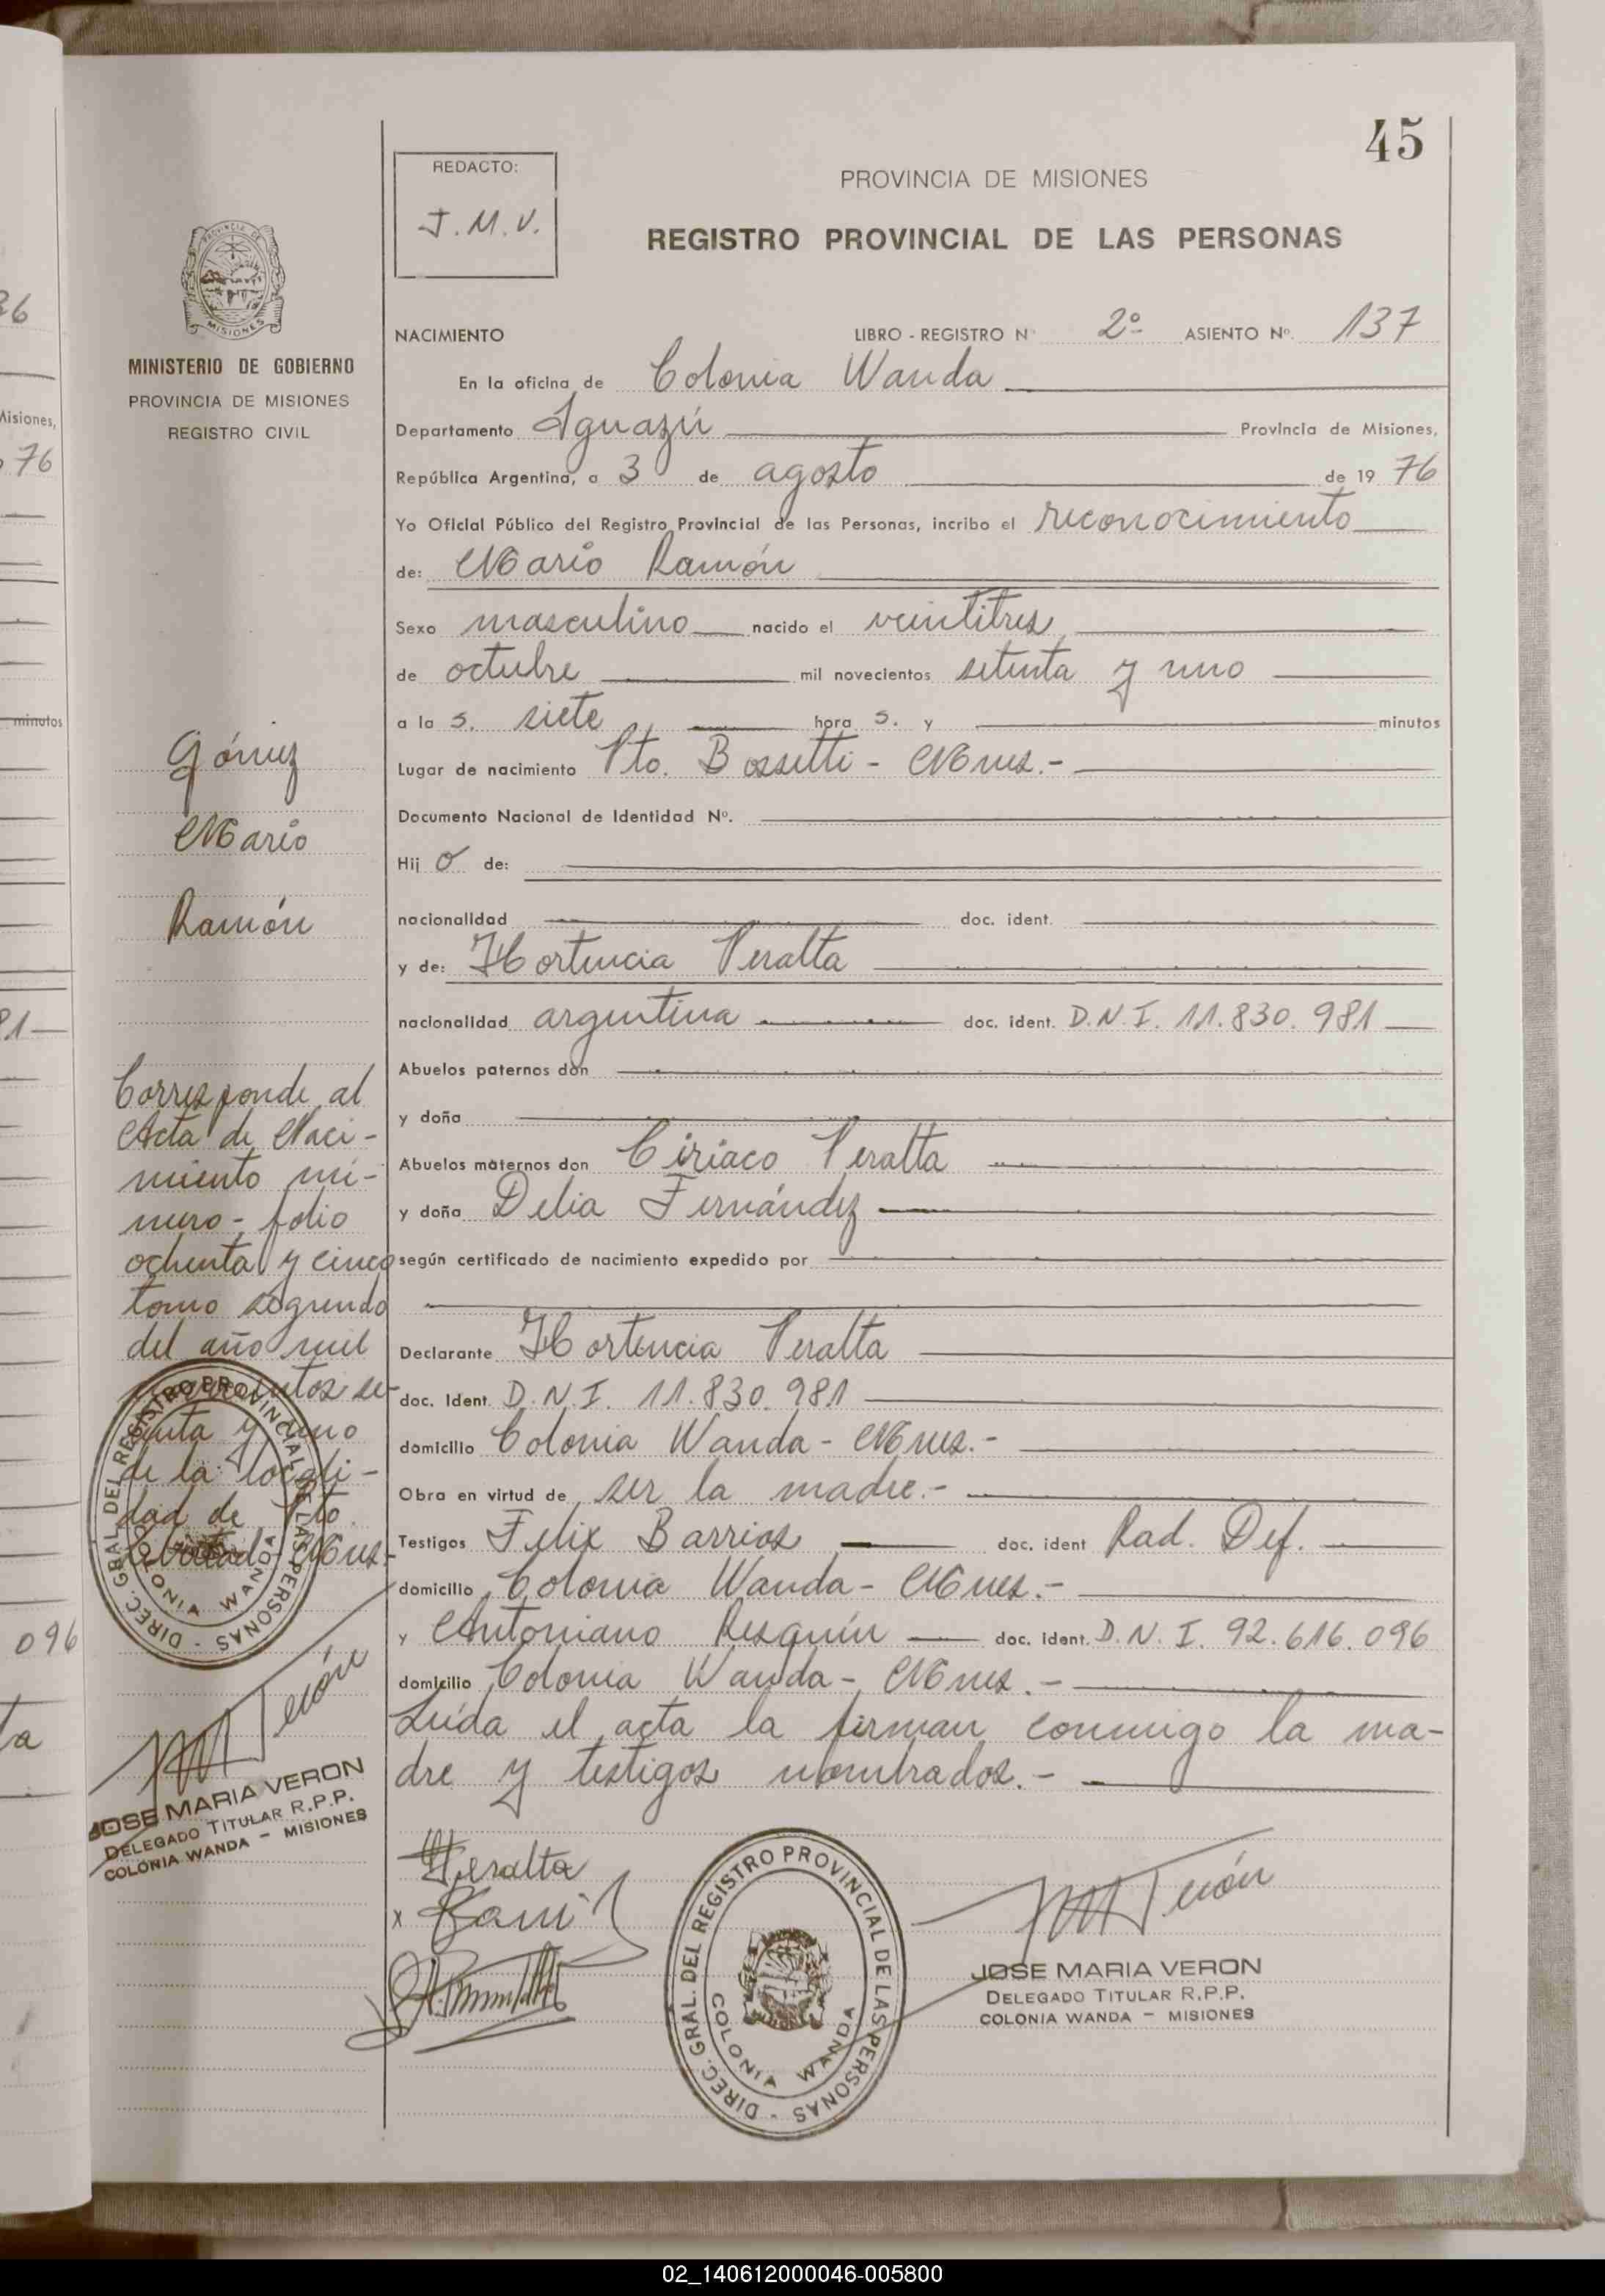 45
REDACTO:
J. M. V.
PROVINCIA DE MISIONES
REGISTRO PROVINCIAL DE LAS PERSONAS
MINISTERIO DE GOBIERNO
PROVINCIA DE MISIONES
REGISTRO CIVIL
Gómez
Mario
Ramón
Corresponde al
Acta de Naci-
miento nú-
mero - folio
ochenta y cinco
tomo segundo
del año mil
novecientos se-
tenta y uno
de la locali-
dad de Pto.
Libertad - Mnes-
DIREC. GRAL. DEL REGISTRO PROVINCIAL DE LAS PERSONAS -
COLONIA WANDA
JOSE MARIA VERON
DELEGADO TITULAR R.P.P.
COLONIA WANDA - MISIONES
NACIMIENTO LIBRO - REGISTRO Nº 2º ASIENTO Nº. 137
En la oficina de Colonia Wanda
Departamento Iguazú Provincia de Misiones,
República Argentina, a 3 de agosto de 19 76
Yo Oficial Público del Registro Provincial de las Personas, incribo el reconocimiento
de: Mario Ramón
Sexo masculino nacido el veintitres
de octubre mil novecientos setenta y uno
a la s. siete hora s. y minutos
Lugar de nacimiento Pto. Bossetti - Mnes.-
Documento Nacional de Identidad Nº.
Hij o de:
nacionalidad doc. ident.
y de: Hortencia Peralta
nacionalidad argentina doc. ident. D.N.I. 11.830.981
Abuelos paternos don
y doña
Abuelos maternos don Ciriaco Peralta
y doña Delia Fernández
según certificado de nacimiento expedido por
Declarante Hortencia Peralta
doc. Ident. D.N.I. 11.830.981
domicilio Colonia Wanda - Mnes.-
Obra en virtud de ser la madre.-
Testigos Felix Barrios doc. ident Rad. Def.
domicilio Colonia Wanda - Mnes.-
y Antoniano Resquín doc. ident. D.N.I. 92.616.096
domicilio Colonia Wanda - Mnes.-
Leída el acta la firman conmigo la ma-
dre y testigos nombrados.-
Peralta
x
DIREC. GRAL. DEL REGISTRO PROVINCIAL DE LAS PERSONAS -
COLONIA WANDA
JOSE MARIA VERON
DELEGADO TITULAR R.P.P.
COLONIA WANDA - MISIONES
02_140612000046-005800